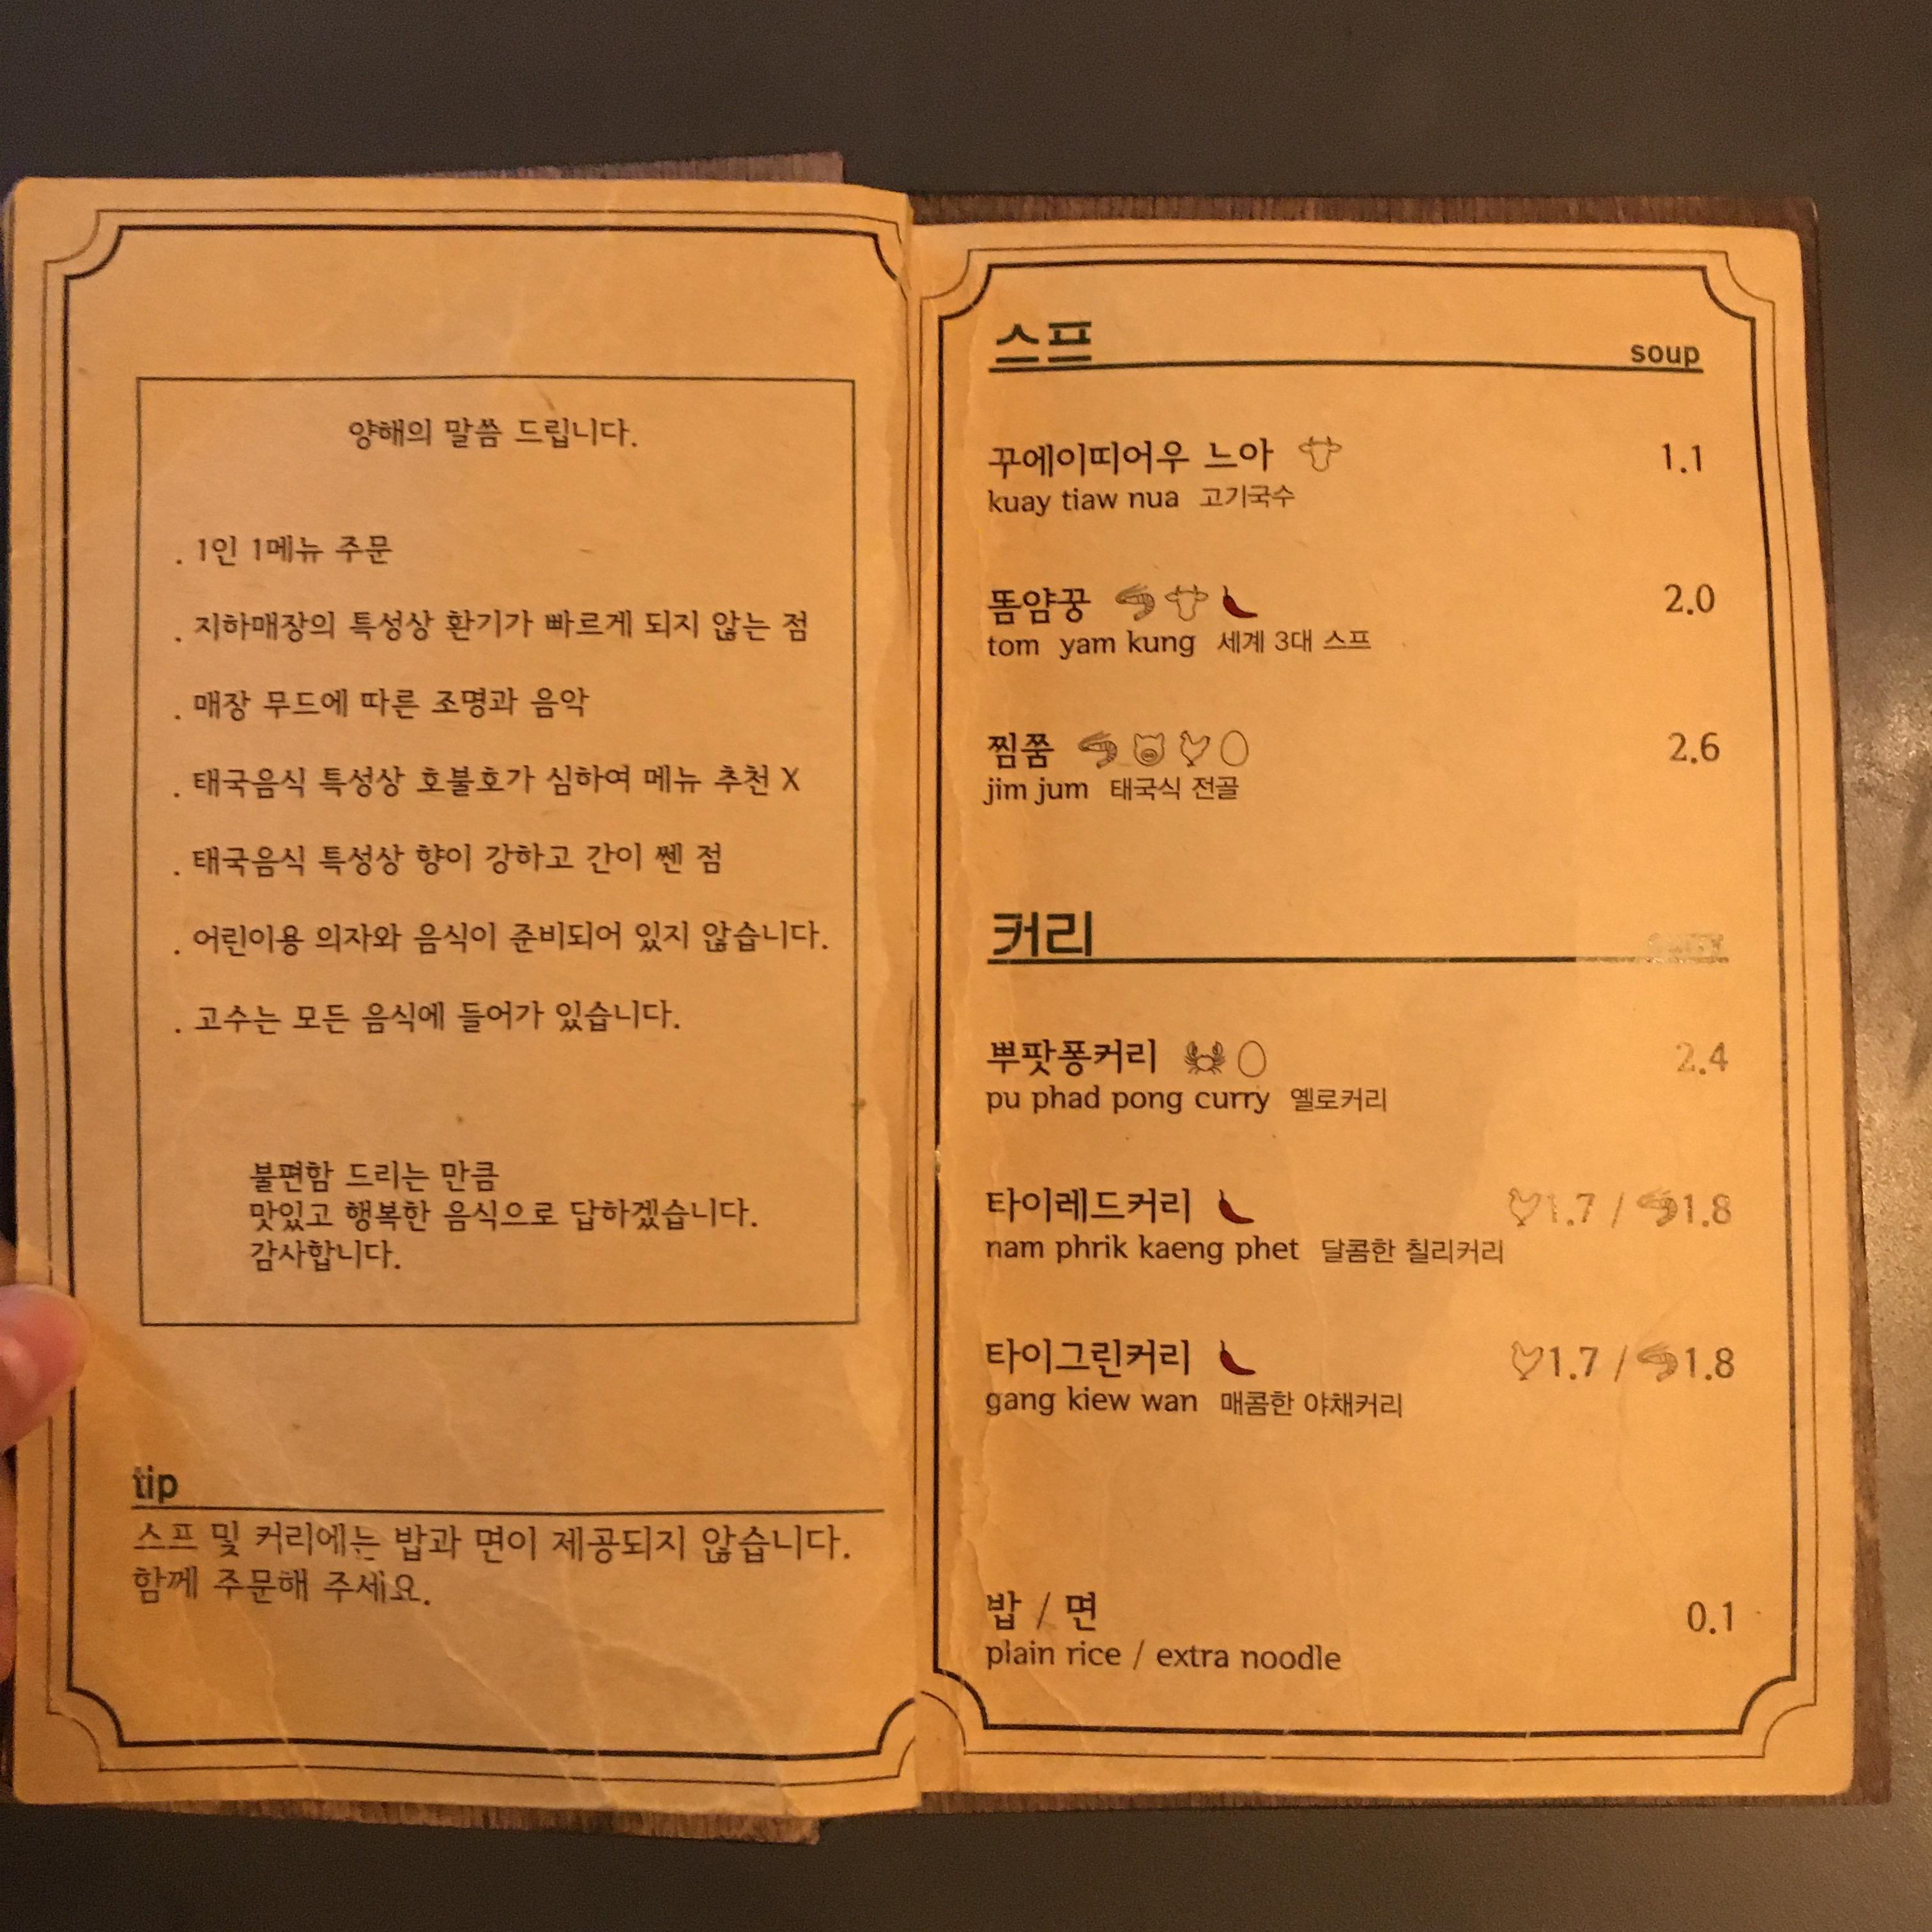 양해의 말씀 드립니다.
. 1인 1메뉴 주문
. 지하매장의 특성상 환기가 빠르게 되지 않는 점
. 매장 무드에 따른 조명과 음악
. 태국음식 특성상 호불호가 심하여 메뉴 추천 X
. 태국음식 특성상 향이 강하고 간이 쎈 점
. 어린이용 의자와 음식이 준비되어 있지 않습니다.
. 고수는 모든 음식에 들어가 있습니다.
불편함 드리는 만큼
맛있고 행복한 음식으로 답하겠습니다.
감사합니다.
tip
스프 및 커리에는 밥과 면이 제공되지 않습니다.
함께 주문해 주세요.
스프 soup
꾸에이띠어우 느아 1.1
kuay tiaw nua 고기국수
똠얌꿍 2.0
tom yam kung 세계 3대 스프
찜쭘 2.6
jim jum 태국식 전골
커리 curry
뿌팟퐁커리 2.4
pu phad pong curry 옐로커리
타이레드커리 1.7 / 1.8
nam phrik kaeng phet 달콤한 칠리커리
타이그린커리 1.7 / 1.8
gang kiew wan 매콤한 야채커리
밥 / 면 0.1
plain rice / extra noodle